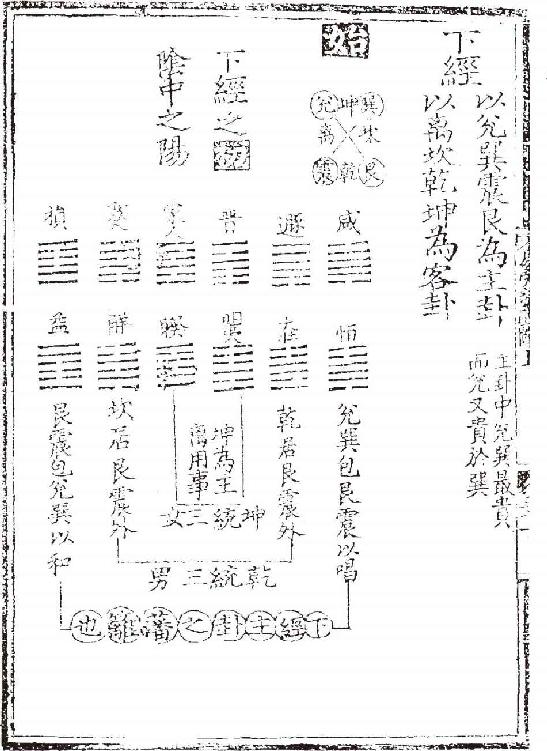 下經
以兊巽震艮為主卦
以离坎乾坤為客卦
主卦中兊巽最貴
而兊又貴於巽
始
巽坤兊
坎离
艮乾震
下經之
陰中之陽
咸遯晉蹇損
恒睽解益
兊巽包艮震以唱
乾居艮震外
坤為主
离用事
坎居艮震外
艮震包兊巽以和
坤統三女
乾統三男
下經主卦之藩籬也